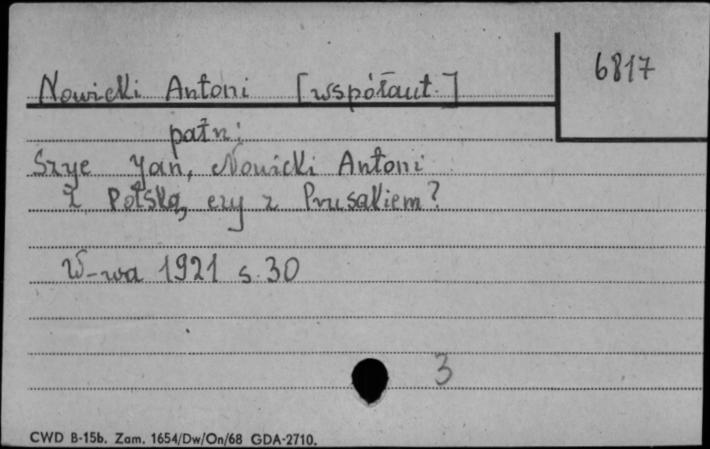 6817
Nowicki Antoni [współaut.]
patrz:
Szye Jan, Nowicki Antoni
Z Polską, czy z Prusakiem?
W-wa 1921 s. 30
3
CWD B-15b. Zam. 1654/Dw/On/68 GDA-2710.